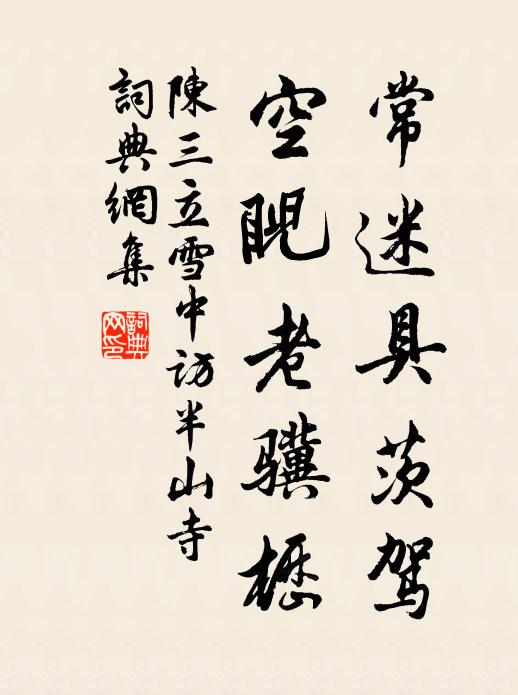 常迷具茨駕
空睨老驥櫪
陳三立雪中访半山寺
詞典網集
詞典網印